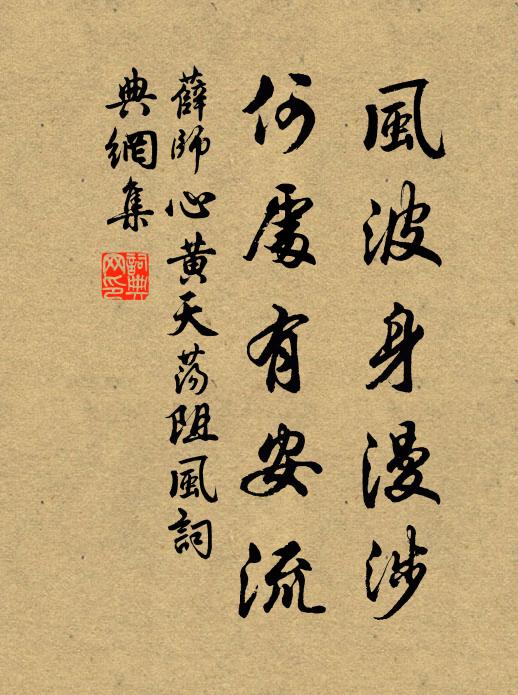 風波身漫涉
何處有安流
薛師心黄天蕩阻風詞
典網集
詞典
网印